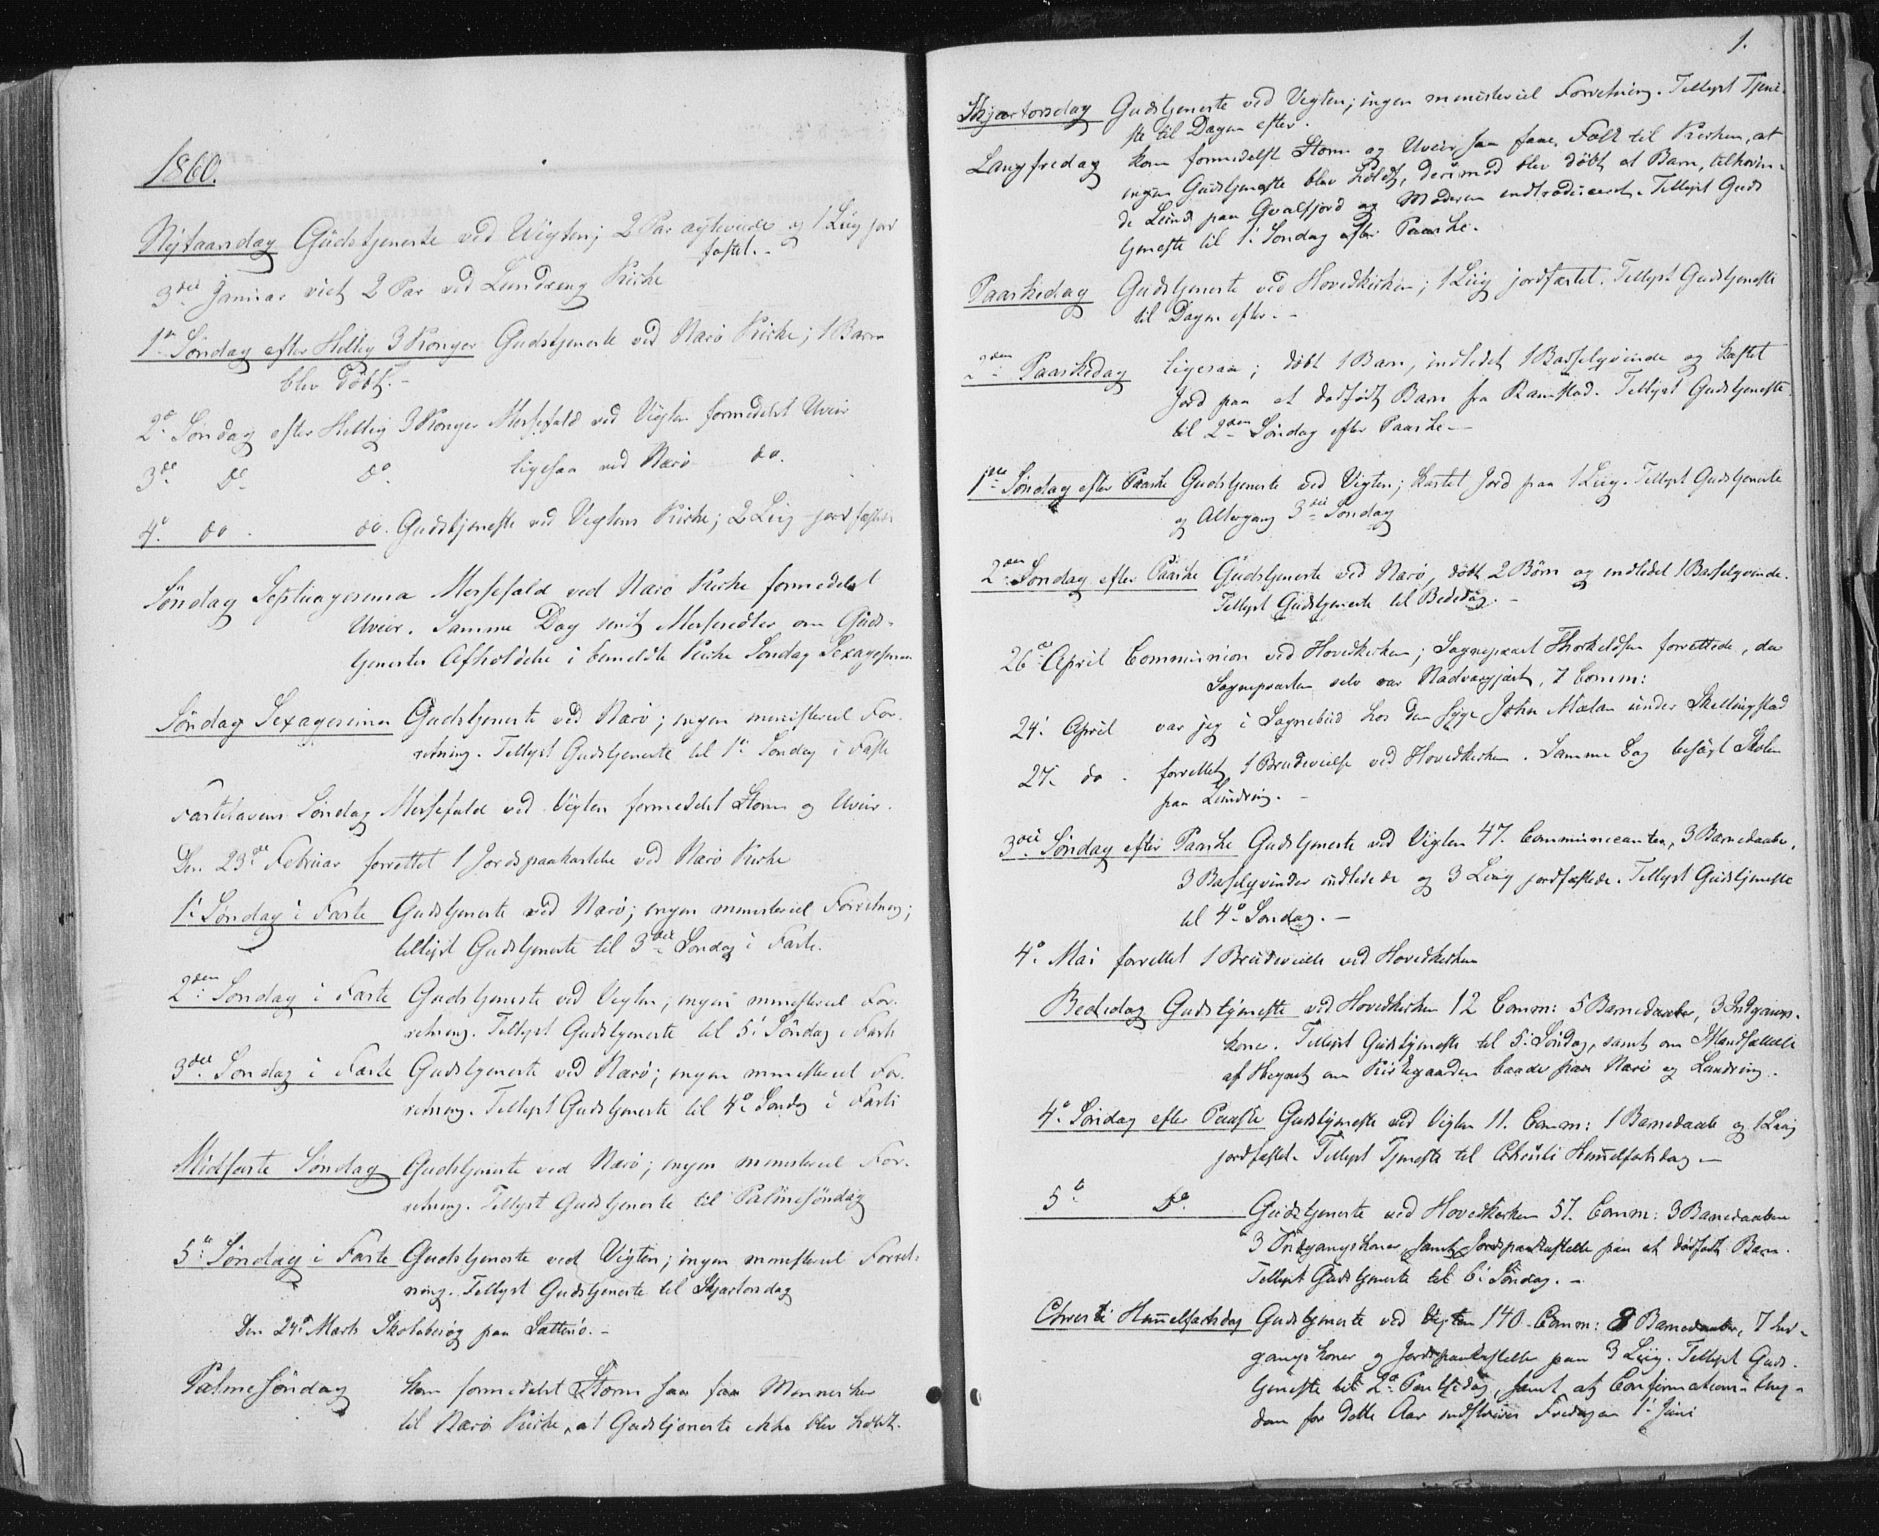 1860.
Nytaarsdag Gudstjeneste ved Vigten; 2 Par ægteviede og 1 Liig jord
fæstet. -
3die Januar viet 2 Par ved Lundring Kirke
1ste Søndag efter Hellig 3 Konger Gudstjeneste ved Nærø Kirke; 1 Barn
blev døbt. -
2den Søndag efter Hellig 3 Konger Messefald ved Vigten formedelst Uveir
3die do do ligesaa ved Nærø do.
4de do do. Gudstjeneste ved Vigtens Kirke; 2 Liig jordfæstede
Søndag Septuagesima Messefald ved Nærø Kirke formedelst
Uveir. Samme Dag sendt Messesedler om Guds-
tjenestes Afholdelse i bemeldte Kirke Søndag Sexagesima
Søndag Sexagesima Gudstjeneste ved Nærø; ingen ministeriel For-
retning. Tillyst Gudstjeneste til 1ste Søndag i Faste
Fastelavens Søndag Messefald ved Vigten formedelst Storm og Uveir.
Den 23de Februar forrettet 1 Jordspaakastelse ved Nærø Kirke
1ste Søndag i Faste Gudstjeneste ved Nærø; ingen ministeriel Forretning;
tillyst Gudstjeneste til 3die Søndag i Faste.
2den Søndag i Faste Gudstjeneste ved Vigten; ingen ministeriel For-
retning. Tillyst Gudstjeneste til 5te Søndag i Faste
3die Søndag i Faste Gudstjeneste ved Nærø; ingen ministeriel For-
retning. Tillyst Gudstjeneste til 4de Søndag i Faste
Midfaste Søndag Gudstjeneste ved Nærø; ingen ministeriel For-
retning. Tillyst Gudstjeneste til Palmesøndag
5te Søndag i Faste Gudstjeneste ved Vigten; ingen ministeriel Forret-
ning. Tillyst Gudstjeneste til Skjærtorsdag
Den 24de Marts Skolebesøg paa
Palmesøndag kom formedelst Storm saa faa Mennesker
til Nærø Kirke, at Gudstjeneste ikke blev holdt.
1.
Skjærtorsdag Gudstjeneste ved Vigten; ingen ministeriel Forretning. Tillyst Tjene-
ste til Dagen efter.
Langfredag kom formedelst Storm og Uveir saa faae Folk til Kirken, at
ingen Gudstjeneste blev holdt, derimod blev døbt et Barn, tilhøren-
de Lund paa og Moderen introduceret. Tillyst Guds
tjeneste til 1ste Søndag efter Paaske.
Paaskedag Gudstjeneste ved Hovedkirken; 1 Liig jordfæstet. Tillyst Gudstjeneste
til Dagen efter. -
2den Paaskedag ligesaa; døbt 1 Barn, indledet 1 Barselqvinde og kastet
Jord paa et dødfødt Barn fra Ramstad. Tillyst Gudstjeneste
til 2den Søndag efter Paaske -
1ste Søndag efter Paaske Gudstjeneste ved Vigten; kastet Jord paa 1 Liig. Tillyst Gudstjeneste
og Altergang 3die Søndag
2den Søndag efter Paaske Gudstjeneste ved Nærø, døbt 2 Børn og indledet 1 Barselqvinde.
Tillyst Gudstjeneste til Bededag. -
26de April Communion ved Hovedkirken; Sognepræst Thorkeldsen forrettede, da
Sognepræsten selv var Nadvergjæst, 7 Comm:
24de April var jeg i Sognebud hos den syge John Mælan under Skellingstad
27de do. forrettet 1 Brudevielse ved Hovedkirken. Samme Dag besøgt Skolen
paa Lundring. -
3die Søndag efter Paaske Gudstjeneste ved Vigten 47. Communicanter, 3 Barnedaabe,
3 Barselqvinder indledede og 3 Liig jordfæstede. Tillyst Gudstjeneste
til 4de Søndag. -
4de Mai forrettet 1 Brudevielse ved Hovedkirken
Bededag Gudstjeneste ved Hovedkirken 12 Comm: 5 Barnedaabe, 3 Indgangs-
koner. Tillyst Gudstjeneste til 5te Søndag, samt om Istandsættelse
af Hegnet om Kirkegaarden baade paa Nærø og Lundring.
4de Søndag efter Paaske Gudstjeneste ved Vigten 11. Comm: 1 Barnedaab og 1 Liig
jordfæstet. Tillyst Tjeneste til Christi Himmelfartsdag -
5te do. Gudstjeneste ved Hovedkirken 51. Comm: 3 Barnedaabe
3 Indgangskoner, samt Jordspaakastelse paa et dødfødt Barn.
Tillyst Gudstjeneste til 6te Søndag. -
Christi Himmelfartsdag Gudstjeneste ved Vigten 140. Comm: 8 Barnedaabe, 7 Ind-
gangskoner og Jordspaakastelse paa 3 Liig. Tillyst Guds-
tjeneste til 2den Pintsedag, samt at Confirmations-Ung-
dom for dette Aar indskrives Fredagen 1ste Juni